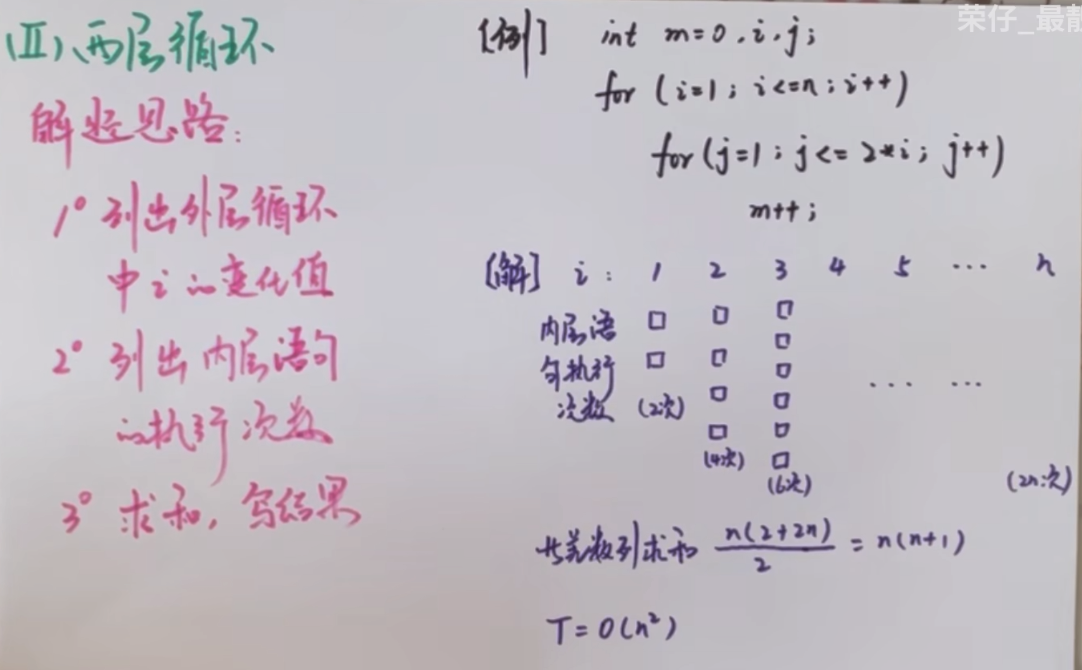 荣仔_最靓
(Ⅱ)、两层循环
解题思路:
1° 列出外层循环
中 i 的变化值
2° 列出内层语句
的执行次数
3° 求和,写结果
[例] int m=0,i,j;
for (i=1; i<=n; i++)
for (j=1; j<=2*i; j++)
m++;
[解] i: 1 2 3 4 5 ... n
内层语
句执行 ... ...
次数 (2次)
(4次)
(6次) (2n次)
等差数列求和 n(2+2n)/2 = n(n+1)
T=O(n²)